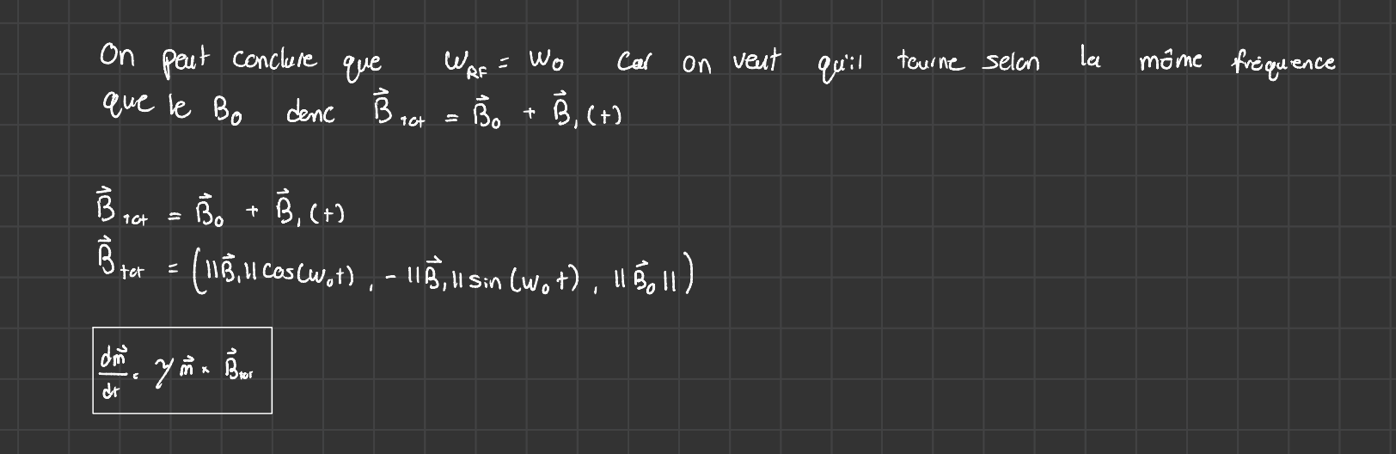 On peut conclure que W_RF = W_0 car on veut qu'il tourne selon la même fréquence
que le B_0 donc B⃗_tot = B⃗_0 + B⃗_1(t)
B⃗_tot = B⃗_0 + B⃗_1(t)
B⃗_tot = (||B⃗_1|| cos(w_0t), -||B⃗_1|| sin(w_0t), ||B⃗_0||)
dm⃗/dt = γ m⃗ × B⃗_tot